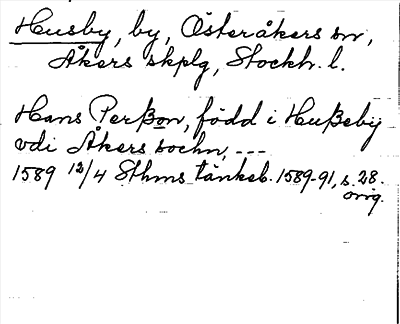 Husby, by, Österåkers sn,
Åkers skplg, Stockh. l.
Hans Perßon, född i Hußeby
vdi Åkers sochn, ---
1589 12/4 Sthms tänkeb. 1589-91, s. 28.
orig.